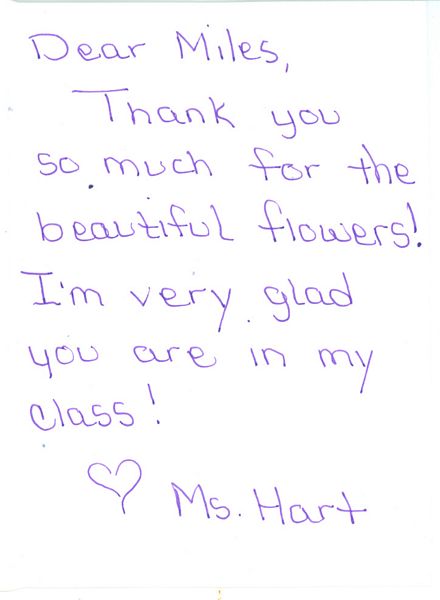 Dear Miles,
Thank you
so much for the
beautiful flowers!
I'm very glad
you are in my
class!
♡ Ms. Hart